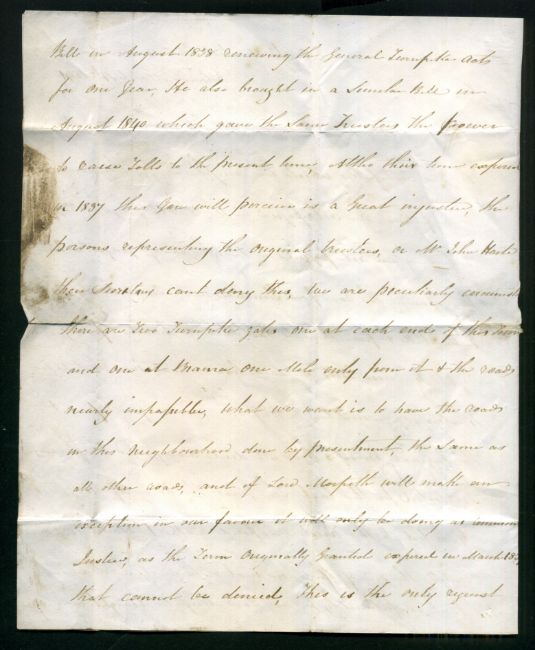 Bill in August 1838 renewing the General Turnpike Acts
for one Year. He also brought in a Similar Bill in
August 1840 which gave the Same Trustees the power
to raise Tolls to the present time, Altho their term expired
in 1837 this You will perceive is a Great injustice, the
persons representing the Original trustees, or Mr John
their Secretary cant deny this, We are peculiarly
there are Two Turnpike gates one at each end of this town
and one at one Mile only from it & the roads
nearly impassible, what we want is to have the roads
in this Neighbourhood done by presentment, the Same as
all other roads, and if Lord Morpeth will make an
exception in our favour it will only be doing us common
Justice, as the Term Originally Granted expired in March
that cannot be denied, This is the only request